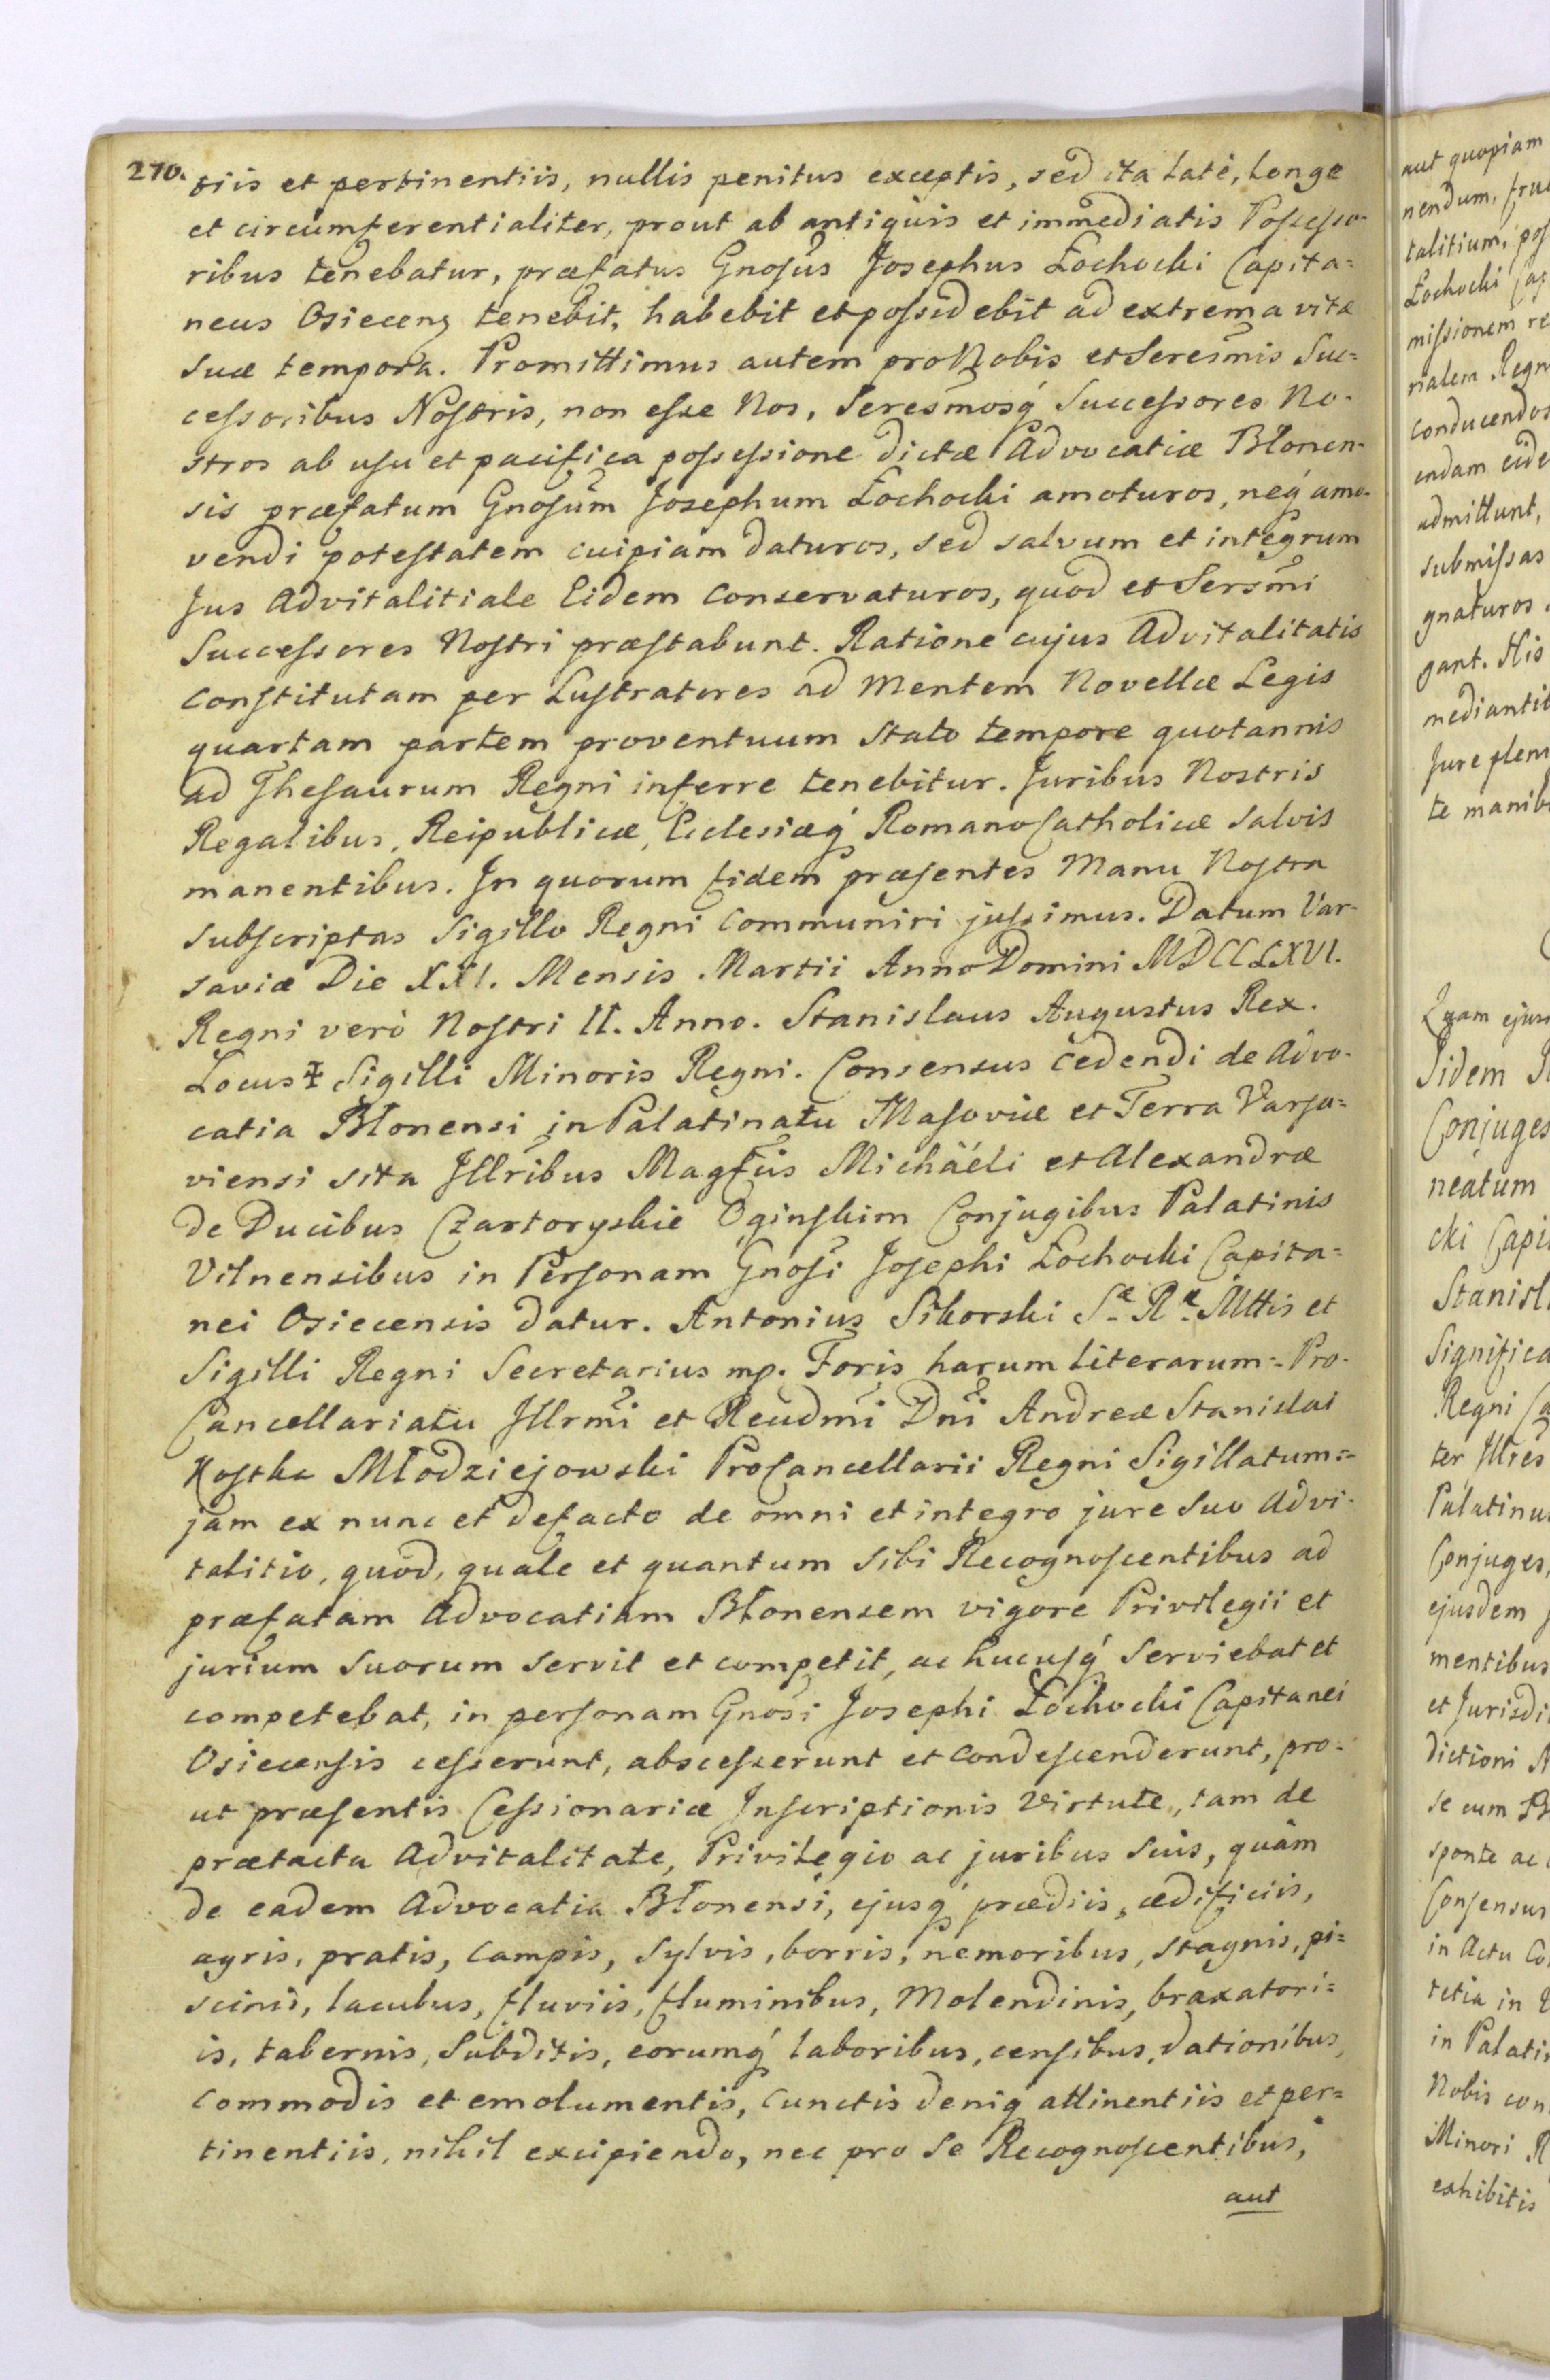 270.
tiis et pertinentiis, nullis penitus exceptis, sed ita latè, longe
et circumferentialiter, prout ab antiquis et immediatis Possesso-
ribus tenebatur, præfatus Gnosus Josephus Łochocki Capita=
neus Osiecens tenebit, habebit et possidebit ad extrema vitæ
suæ tempora. Promittimus autem pro Nobis et Seresmis Suc=
cessoribus Nostris, non esse Nos, Seresmosq́ Successores No-
stros ab usu et pacifica possessione dictæ Advocatiæ Błonen-
sis præfatum Gnosum Josephum Łochocki amoturos, neq́ amo-
vendi potestatem cuipiam daturos, sed salvum et integrum
Jus Advitalitiale Eidem conservaturos, quod et Sersmi
Successores Nostri præstabunt. Ratione cujus Advitalitatis
constitutam per Lustratores ad mentem Novellæ Legis
quartam partem proventuum stato tempore quotannis
ad Thesaurum Regni inferre tenebitur. Juribus Nostris
Regalibus, Reipublicæ, Ecclesiæq́ Romano Catholicæ salvis
manentibus. In quorum fidem præsentes Manu Nostra
subscriptas Sigillo Regni communiri jussimus. Datum Var-
saviæ Die XXI. Mensis Martii Anno Domini MDCCLXVI.
Regni verò Nostri II. Anno. Stanislaus Augustus Rex.
Locus ‡ Sigilli Minoris Regni. Consensus cedendi de Advo-
catia Błonensi in Palatinatu Masoviæ et Terra Varsa=
viensi sita Illribus Magficis Michäeli et Alexandræ
de Ducibus Czartoryskie Oginskim Conjugibus Palatinis
Vilnensibus in Personam Gnosi Josephi Łochocki Capita=
nei Osiecensis datur. Antonius Sikorski Sæ Ræ Mttis et
Sigilli Regni Secretarius mp. Foris harum literarum=- Pro-
Cancellariatu Illrmi et Reudmi Dni Andreæ Stanislai
Kostka Młodziejowski ProCancellarii Regni Sigillatum=-
jam ex nunc et defacto de omni et integro jure suo Advi-
talitio, quod, quale et quantum sibi Recognoscentibus ad
præfatam Advocatiam Błonensem vigore Privilegii et
jurium suorum servit et competit, ac hucusq́ serviebat et
competebat, in personam Gnosi Josephi Łochocki Capitanei
Osiecensis cesserunt, abscesserunt et condescenderunt, pro-
ut præsentis Cessionariæ Inscriptionis virtute, tam de
prætacta Advitalitate, Privilegio ac juribus suis, quàm
de eadem Advocatia Błonensi, ejusq́ prædiis, ædificiis,
agris, pratis, campis, sylvis, borris, nemoribus, stagnis, pi=
scinis, lacubus, fluviis, fluminibus, Molendinis, braxatori=
is, tabernis, Subditis, eorumq́ laboribus, censibus, dationibus,
commodis et emolumentis, cunctis deniq attinentiis et per=
tinentiis, nihil excipiendo, nec pro se Recognoscentibus,
aut
aut quopiam
nendum, fru
talitium, pos
Łochocki Cap
missionem re
rialem Regn
conducendos
endam eide
admittunt,
submissas
gnaturos
gant. His
mediantib
Jure plen
te manib
Quam ejus
Iidem
Conjuges
neatum
cki Capi
Stanisl
Significa
Regni Ca
ter Illres
Palatinu
Conjuges,
ejusdem
mentibus
et Jurisdi
dictioni
se cum
sponte ac
Consensus
in Actu Co
retia in
in Palati
Nobis con
Minori R
exhibitis